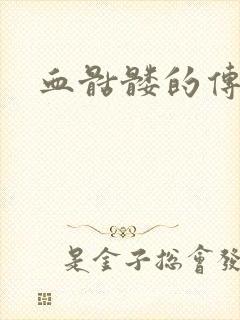 血骷髏的傳
是金子总會發